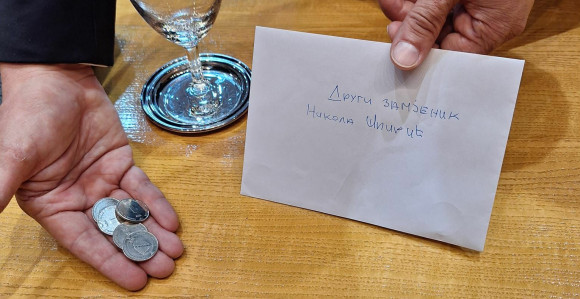 Други замјеник
Никола Шпирић